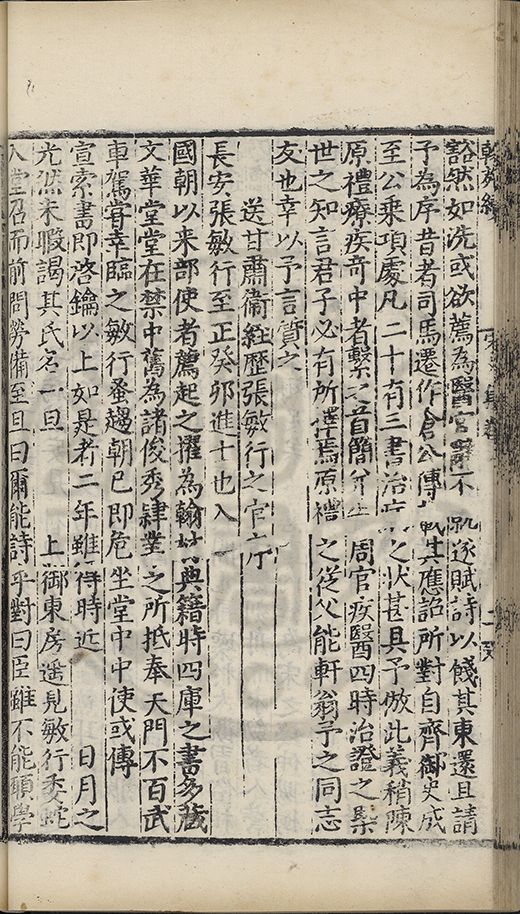 豁然如洗或欲薦為醫官辭不就遂賦詩以餞其東還且請
予為序昔者司馬遷作倉公傳載其應詔所對自齊御史成
至公乘項處凡二十有三書治病之狀甚具予倣此義稍陳
原禮療疾奇中者繫之首簡 周官疾醫四時治證之槩
世之知言君子必有所擇焉原禮之從父能軒翁予之同志
友也幸以予言質之
送甘肅衞經歷張敏行之官序
長安張敏行至正癸卯進士也入
國朝以来部使者薦起之擢為翰林典籍時四庫之書多藏
文華堂堂在禁中舊為諸俊秀肄業之所抵奉天門不百武
車駕甞幸臨之敏行蚤趨朝已即危坐堂中中使或傳
宣索書即啓鑰以上如是者二年雖得時近 日月之
光然未暇謁其氏名一旦 上御東房遥見敏行委蛇
入堂召而前問勞備至且曰爾能詩乎對曰臣雖不能願學